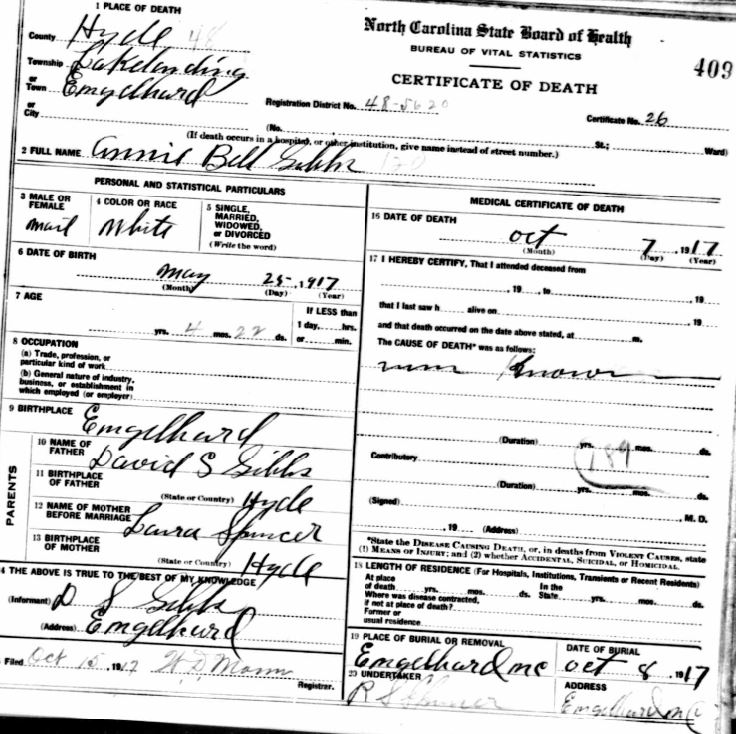 1 PLACE OF DEATH
County Hyde 48
Township Lakelanding
or
Town Emgelhard
or
City
North Carolina State Board of Health
BUREAU OF VITAL STATISTICS
CERTIFICATE OF DEATH
409
Registration District No. 48-5620
Certificate No. 26
(No. St.; Ward)
(If death occurs in a hospital, or other institution, give name instead of street number.)
2 FULL NAME Annie Bell Gibbs
PERSONAL AND STATISTICAL PARTICULARS
3 MALE OR FEMALE
mail
4 COLOR OR RACE
White
5 SINGLE, MARRIED, WIDOWED, or DIVORCED
(Write the word)
6 DATE OF BIRTH
may 25, 1917
(Month) (Day) (Year)
7 AGE
yrs. 4 mos. 22 ds.
If LESS than
1 day, hrs.
or min.
8 OCCUPATION
(a) Trade, profession, or
particular kind of work
(b) General nature of industry,
business, or establishment in
which employed (or employer)
9 BIRTHPLACE Emgelhard
PARENTS
10 NAME OF FATHER David S Gibbs
11 BIRTHPLACE OF FATHER
(State or Country) Hyde
12 NAME OF MOTHER BEFORE MARRIAGE Laura Spencer
13 BIRTHPLACE OF MOTHER
(State or Country) Hyde
4 THE ABOVE IS TRUE TO THE BEST OF MY KNOWLEDGE
(Informant) D S Gibbs
(Address) Emgelhard
Filed Oct 15 1917 W D Mann
Registrar.
MEDICAL CERTIFICATE OF DEATH
16 DATE OF DEATH
oct 7, 1917
(Month) (Day) (Year)
17 I HEREBY CERTIFY, That I attended deceased from
, 19 , to , 19
that I last saw h alive on , 19
and that death occurred on the date above stated, at m.
The CAUSE OF DEATH* was as follows:
Known
(Duration) yrs. mos. ds.
189
Contributory
(Duration) yrs. mos. ds.
(Signed) , M. D.
, 19 (Address)
*State the DISEASE CAUSING DEATH, or, in deaths from VIOLENT CAUSES, state
(1) MEANS OF INJURY; and (2) whether ACCIDENTAL, SUICIDAL, or HOMICIDAL.
18 LENGTH OF RESIDENCE (For Hospitals, Institutions, Transients or Recent Residents)
At place
of death yrs. mos. ds.
In the
State yrs. mos. ds.
Where was disease contracted,
if not at place of death?
Former or
usual residence
19 PLACE OF BURIAL OR REMOVAL
Emgelhard nc
DATE OF BURIAL
oct 8, 1917
20 UNDERTAKER
R S Spencer
ADDRESS
Emgelhard n C